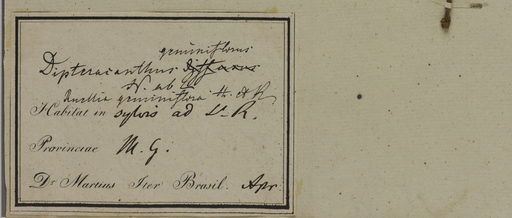 geminiflorus
Dipteracanthus diffusus
N. ab E.
Ruellia geminiflora H. et K
Habitat in sylvis ad S. R.
Provinciae M. G.
Dr Martius Iter Brasil. Apr